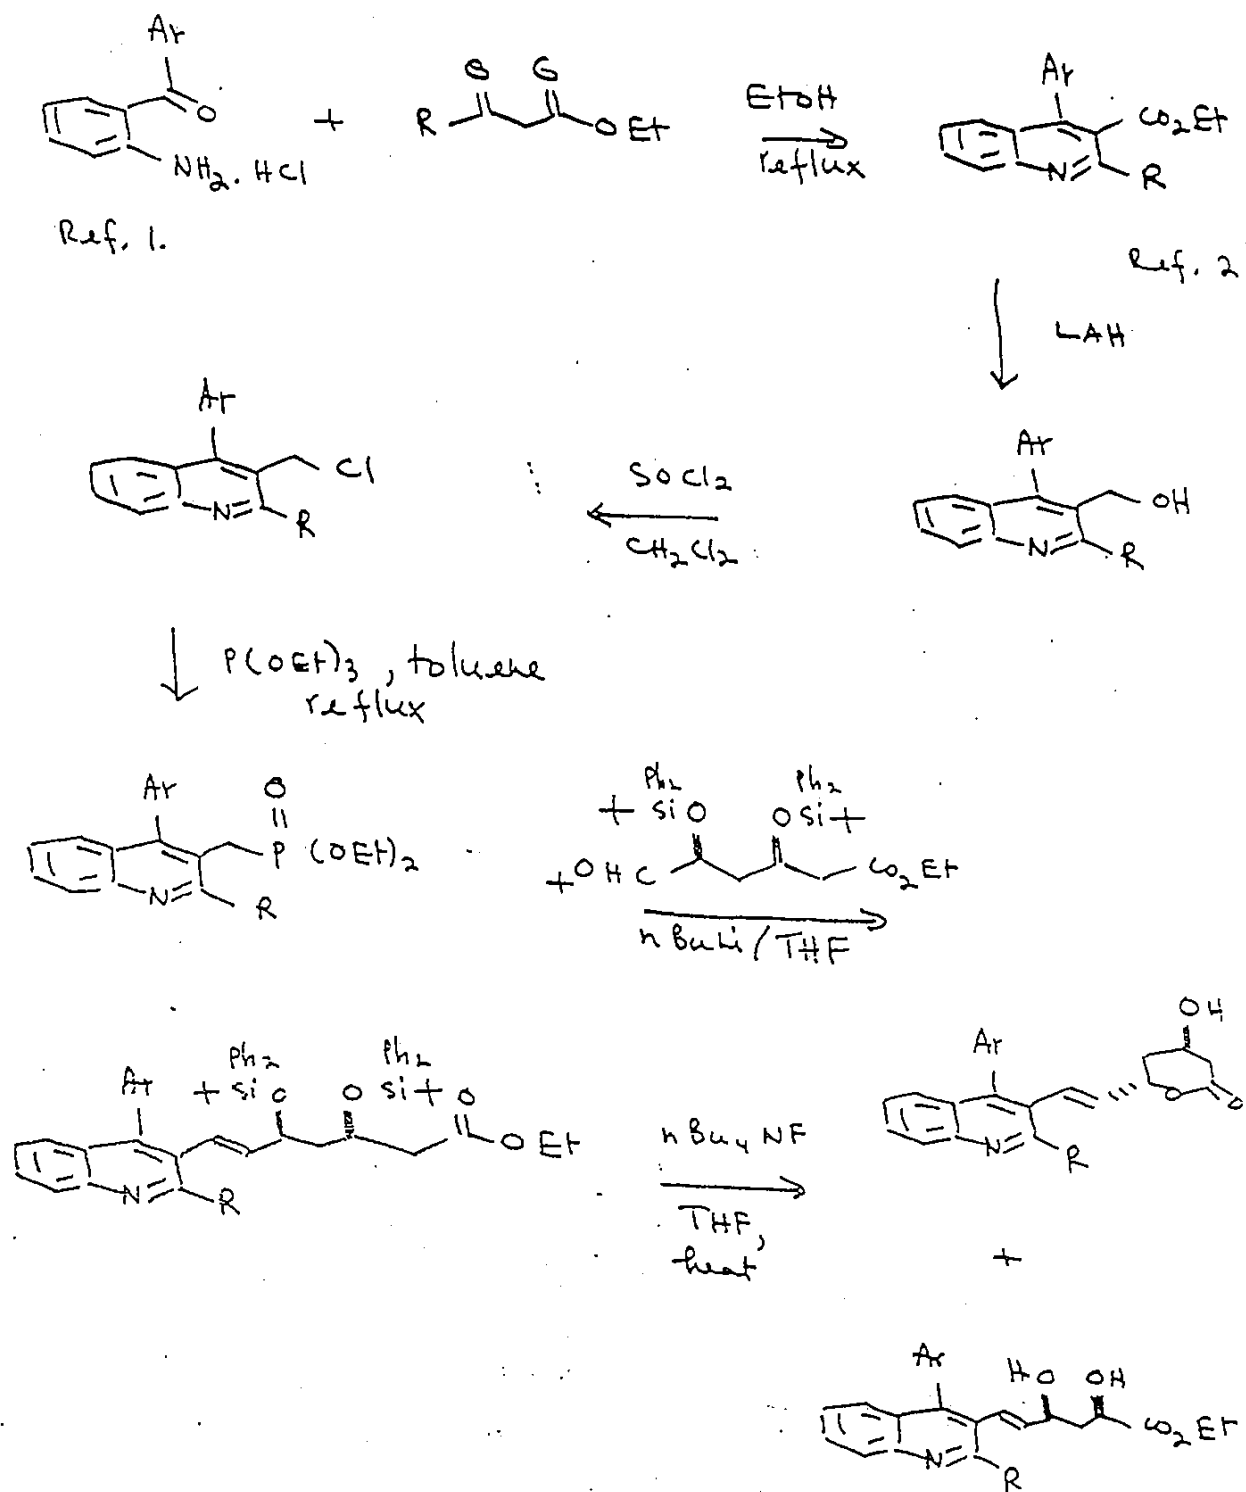 Ar
O
NH2. HCl
Ref. 1.
+
R
O O
OEt
EtOH
reflux
Ar
CO2Et
N
R
Ref. 2
LAH
Ar
Cl
N
R
SOCl2
CH2Cl2
Ar
OH
N
R
P(OEt)3, toluene
reflux
Ar
O
P (OEt)2
N
R
Ph2 Ph2
Si O O Si
+ OHC CO2Et
nBuLi/THF
Ph2 Ph2
Ar Si O O Si O
OEt
N
R
nBu4NF
THF,
heat
OH
Ar
O
O
N
R
+
Ar HO OH
CO2Et
N
R